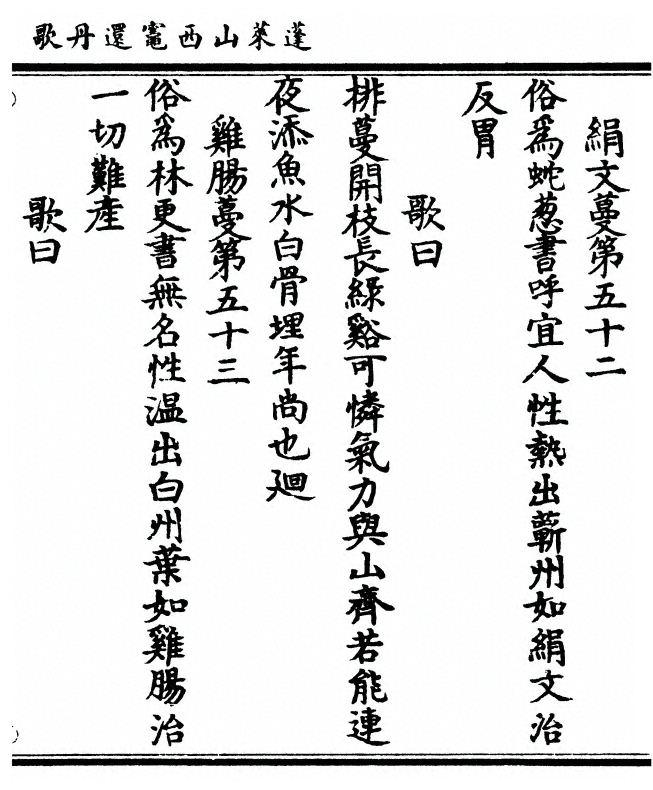 蓬萊山西竈還丹歌
絹文蔓第五十二
俗爲蛇葱書呼宜人性熱出蘄州如絹文治
反胃
歌曰
排蔓開枝長綠谿可憐氣力與山齊若能連
夜添魚水白骨埋年尚也廻
雞腸蔓第五十三
俗爲林更書無名性温出白州葉如雞腸治
一切難產
歌曰